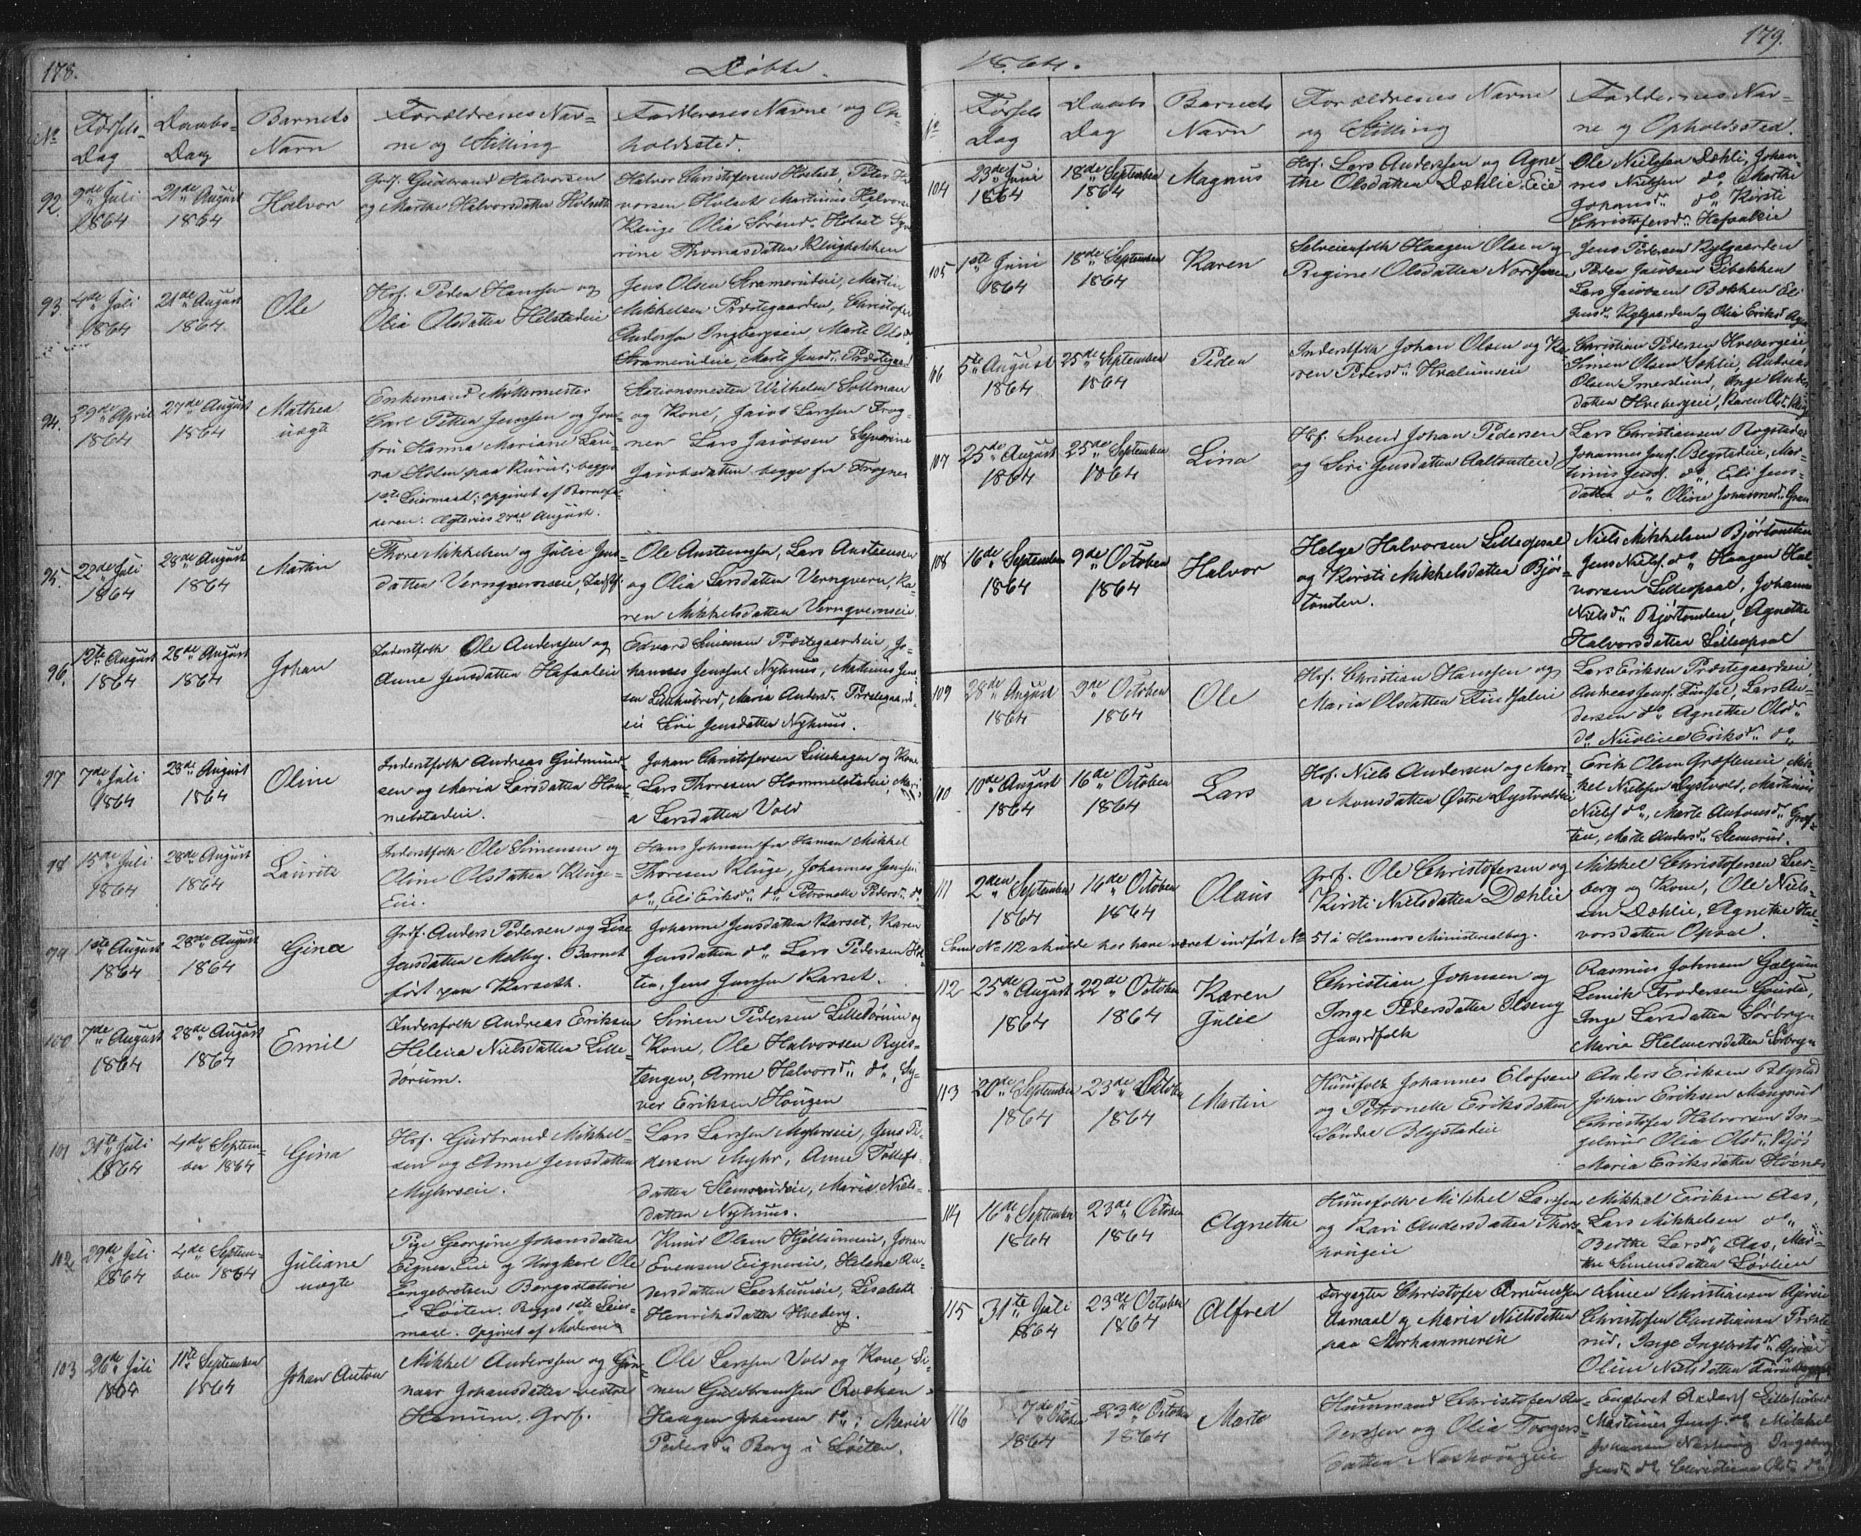 178.
Döbte.
No
Fødsels-
Dag
Daabs-
Dag
Barnets
Navn
Forældrenes Nav-
ne og Stilling
Faddernes Navne og Op-
holdssted.
92.
9de Juli
1864
21de August
1864
Halvor
Grf. Gudbrand Halvorsen
og Marthe Halvorsdatter Holseth
Halvor Christofersen Holset, Peter
vorsen Holset Martinus Halvors
Klinge Olia Sørensd. Holset
rine Thomasdatter
93.
4de Juli
1864
21de August
1864
Ole
Hf. Peder Hansen og
Olia Olsdatter Helstadeie
Jens Olsen Kramerudeie, Martin
Mikkelsen Præstegaarden, Christofer
Andersen Ingbergseie Marte Olsd.
Kramerudeie, Marte Jensd. Præstegaard
94.
29de April
1864
27de August
1864
Mathea
uægte
Enkemand
Carl Petter Jenssen og Jom-
fru Hanna Mariane Lau-
ra Holm paa Rurud; begges
1ste Leiermaal; opgivet af Barnefa-
deren. Ægteviet 27de August.
Stationsmester Wilhelm
og Kone, Jacob Larssen Frog-
ner Lars Jacobsen Syverine
Jacobsdatter begge fra Frogner
95.
22de Juli
1864
28de August
1864
Martin
Thore Mikkelsen og Julie Jens-
datter Vernqverneie,
Ole Austensen, Lars Austensen
og Olia Larsdatter Vernqvern, Ka-
ren Mikkelsdatter Vernqverneie.
96.
12te August
1864
28de August
1864
Johan
Inderstfolk Ole Anderssen og
Anne Jensdatter Hafsaleie
Edvard Simensen Præstegaardeie, Jo-
hannes Jensen Nyhuus, Mathias Jens-
sen Lillehubred, Maria Andersd. Præstegaards-
eie Siri Jensdatter Nyhuus.
97
7de Juli
1864
28de August
1864
Oline
Inderstfolk Andreas Gudmund-
sen og Maria Larsdatter Hom-
melstadeie.
Johan Christofersen Lillehagen og Kone
Lars Thoresen Hommelstadeie Mari-
a Larsdatter Vold
98
15de Juli
1864
28de August
1864
Lauritz
Inderstfolk Ole Simensen og
Oline Olsdatter Klinge-
Eie.
Hans Johnsen fra Hamar Mikkel
Thoresen Klinge, Johannes Jensen
do, Eli Eriksd. do Petronelle Pedersd. do
99
1ste August
1864
28de August
1864
Gina
Grf. Anders Pedersen og Lise
Jensdatter Melby. Barnet
født paa Karseth.
Johanne Jensdatter Karset, Karen
Jensdatter do Lars Pedersen
Jens Jenssen Karset.
100
7de August
1864
28de August
1864
Emil
Inderstfolk Andreas Eriksen
Helena Nielsdatter Lille-
dørum.
Simen Pedersen Lilledørum og
Kone, Ole Halvorsen Ryes-
tangen, Anne Halvorsd. do, Sy-
ver Eriksen Hougen
101
31te Juli
1864
4de Septem-
ber 1864
Gina
Hf. Gudbrand Mikkel-
sen og Anne Jensdatter
Myhrseie.
Lars Larssen Myhrseie, Jens Pe-
dersen Myhr, Anne Tollefs-
datter Slemsrudeie, Marie Niels-
datter Nyhuus.
102
29de Juli
1864
4de Septem-
ber 1864
Juliane
uægte
Pige Georgine Johansdatter
Eigner-Eie og Ungkarl Ole
Engebretsen Borgsstation
i Løiten. Begges 1ste Leier-
maal. Opgivet af Moderen
Knud Olsen Hjellumeie, Johan
Evensen Eignerie, Helena An-
dersdatter Leershuseie, Lisabeth
Henriksdatter Hveberg.
103
26de Juli
1864
11te September
1864
Johan Anton
Mikkel Anderssen og Gun-
naar Johansdatter vestre
Hanum. Grf.
Ole Larssen Vold og Kone, Si-
men Guldbrandsen
Haagen Johansen do, Maria
Pedersd. Berg i Løiten.
1864.
179.
No
Fødsels
Dag
Daabs
Dag
Barnets
Navn
Forældrenes Navne
og Stilling
Faddernes Nav-
ne og Opholdssted.
104
23de Juni
1864
18de September
1864
Magnus
Hf. Lars Anderssen og Agne-
the Olsdatter Dæhlie-Eie
Ole Nielsen Dæhli, Johan-
nes Nielsen do Marthe
Johansd. do Kirsti
Christofersd. Hafsaleie
105
1ste Juni
1864
18de September
1864
Karen
Selveierfolk Haagen Olsen og
Regine Olsdatter
Jens Pedersen Kylgaarden
Peder Jacobsen Libekken
Lars Jacobsen Bækken
Jensd. Kylgaarden og Olia Eriksd.
106
5te August
1864
25de September
1864
Peder
Inderstfolk Johan Olsen og Ka-
ren Pedersd. Hvalumseie
Christian Pedersen Hvebergeie
Simen Olsen Dæhlie, Andreas
Olsen Imerslund, Inge Anders-
datter Hvebergeie, Karen Olsd.
107
25de August
1864
25de September
1864
Lina
Hf. Svend Johan Pedersen
og Siri Jensdatter
Lars Christiansen Bogstadeie
Johannes Jensen Blystadeie, Mar-
tinus Jensen do, Eli Jens-
datter do Oline Johannesd.
108
16de September
1864
9de October
1864
Halvor
Helge Halvorsen Lilleopsal
og Kirsti Mikkelsdatter Bjør-
tomten.
Niels Mikkelsen Bjørtomten
Jens Nielsen do Haagen Hal-
vorsen Lilleopsal, Johanne
Nielsd. Bjørtomten, Agnethe
Halvorsdatter Lilleopsal
109
28de August
1864
9de October
1864
Ole
Hf. Christian Hanssen og
Maria Olsdatter
Lars Eriksen Præstegaardeie,
Andreas Jensen Finsal, Lars An-
dersen do Agnethe Olsd.
do Nicoline Eriksd. do
110
10de August
1864
16de October
1864
Lars
Hf. Niels Andersen og Mari-
a Monsdatter Østre Dystvoldeie
Erik Olsen Græfteneie Mik-
kel Nielsen Dystvold, Martinus
Nielsen do, Marte Antonsd. Græf-
ten, Marte Andersd. Slemsrud.
111
2den September
1864
16de October
1864
Olaus
Grf. Ole Christofersen og
Kirsti Nielsdatter Dæhlie
Mikkel Christofersen Leer-
berg og Kone, Ole Niels-
sen Dæhlie, Agnethe Hal-
vorsdatter Opsal.
Som No 112 skulde her have været indført No 51 i Hamars Ministerialbog.
112
25de August
1864
22de October
1864
Karen
Julie
Christian Johnsen og
Inge Pedersdatter Ilseng
Gaardfolk
Rasmus Johnsen Galgum
Lenvik Frodersen
Inge Larsdatter Sørbryn
Maria Helmersdatter Sørbryn
113
20de September
1864
23de October
1864
Martin
Huusfolk Johannes Elofsen
og Petronelle Eriksdatter
Søndre Blystadeie
Anders Eriksen Blystad
Johan Eriksen Mangrud
Christofer Halvorsen In-
gelsrud Olia Olsd.
Maria Eriksdatter
114
16de September
1864
23de October
1864
Agnethe
Huusfolk Mikkel Larssen
og Kari Andersdatter Thors-
hougeie
Mikkel Eriksen Aas,
Lars Mikkelsen do
Berthe Larsd. Aas, Mar-
the Simensdatter Løvlien
115
31te Juli
1864
23de October
1864
Alfred
Forpagter Christofer Amundsen
Aamaal og Maria Nielsdatter
paa Storhammeren
Simen Christiansen Gjørsli
Christofer Christiansen
Inge Ingebretsd.
Oline Nielsdatter
116
7de October
1864
23de October
1864
Marte
Huusmand Christofer An-
dersen og Olia Torgers-
datter Næshougeie
Engebret Andersen Lillehubred
Martinus Jensen do Mikkel
Johannesen Næshoug Ingeborg
Jensd. do Christiane Olsd. do